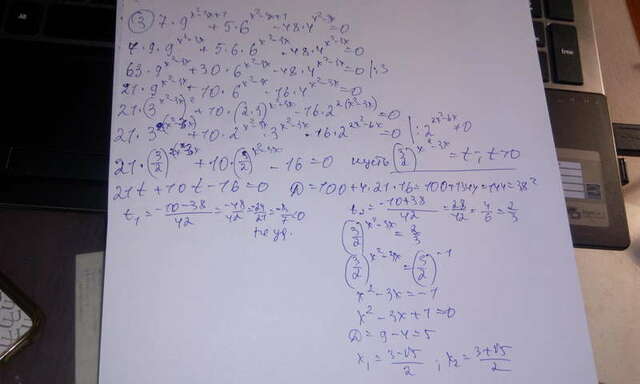 ③ 7·9^(x²-3x+1) + 5·6^(x²-3x+1) - 48·4^(x²-3x) = 0
7·9·9^(x²-3x) + 5·6·6^(x²-3x) - 48·4^(x²-3x) = 0
63·9^(x²-3x) + 30·6^(x²-3x) - 48·4^(x²-3x) = 0 |:3
21·9^(x²-3x) + 10·6^(x²-3x) - 16·4^(x²-3x) = 0
21·(3^(x²-3x))² + 10·(2·3)^(x²-3x) - 16·2^(2(x²-3x)) = 0
21·3^(2(x²-3x)) + 10·2^(x²-3x)·3^(x²-3x) - 16·2^(2x²-6x) = 0 |:2^(2x²-6x) ≠ 0
21·(3/2)^(2(x²-3x)) + 10·(3/2)^(x²-3x) - 16 = 0 пусть (3/2)^(x²-3x) = t, t>0
21t + 10t - 16 = 0 D = 100+4·21·16 = 100+1344 = 1444 = 38²
t₁ = (-10-38)/42 = -48/42 = -24/21 = -8/7 < 0 t₂ = (-10+38)/42 = 28/42 = 4/6 = 2/3
не уд.
(3/2)^(x²-3x) = 2/3
(3/2)^(x²-3x) = (3/2)^(-1)
x²-3x = -1
x²-3x+1 = 0
D = 9-4 = 5
x₁ = (3-√5)/2 ; x₂ = (3+√5)/2